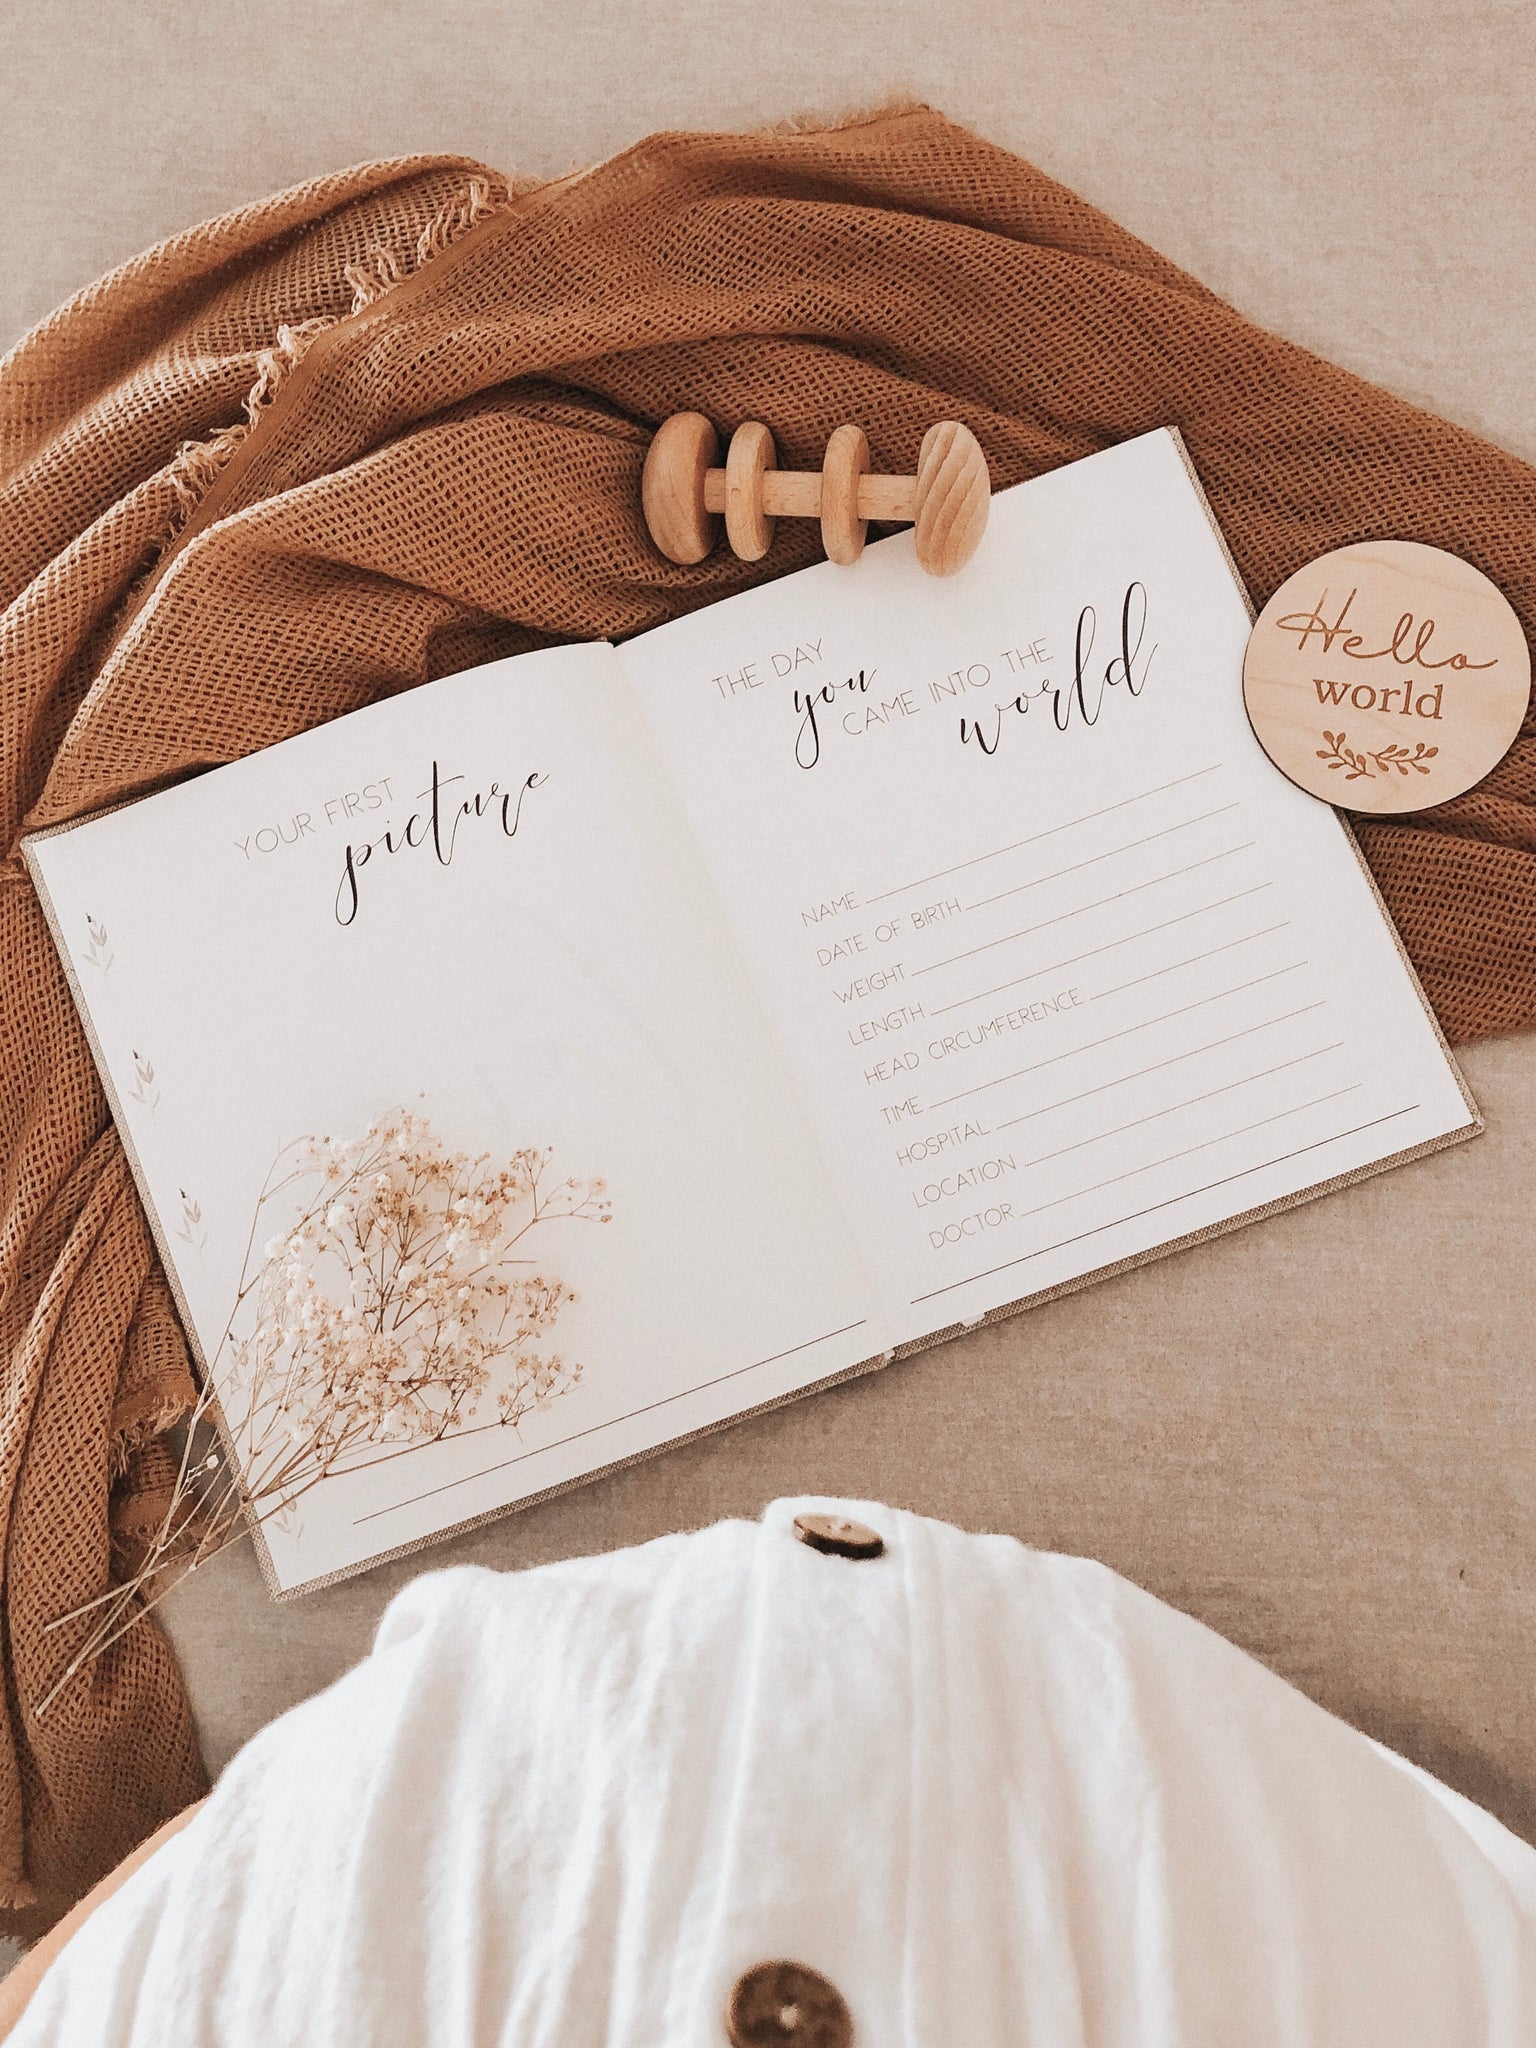 YOUR FIRST
picture
THE DAY
you
CAME INTO THE
world
NAME
DATE OF BIRTH
WEIGHT
LENGTH
HEAD CIRCUMFERENCE
TIME
HOSPITAL
LOCATION
DOCTOR
Hello
world